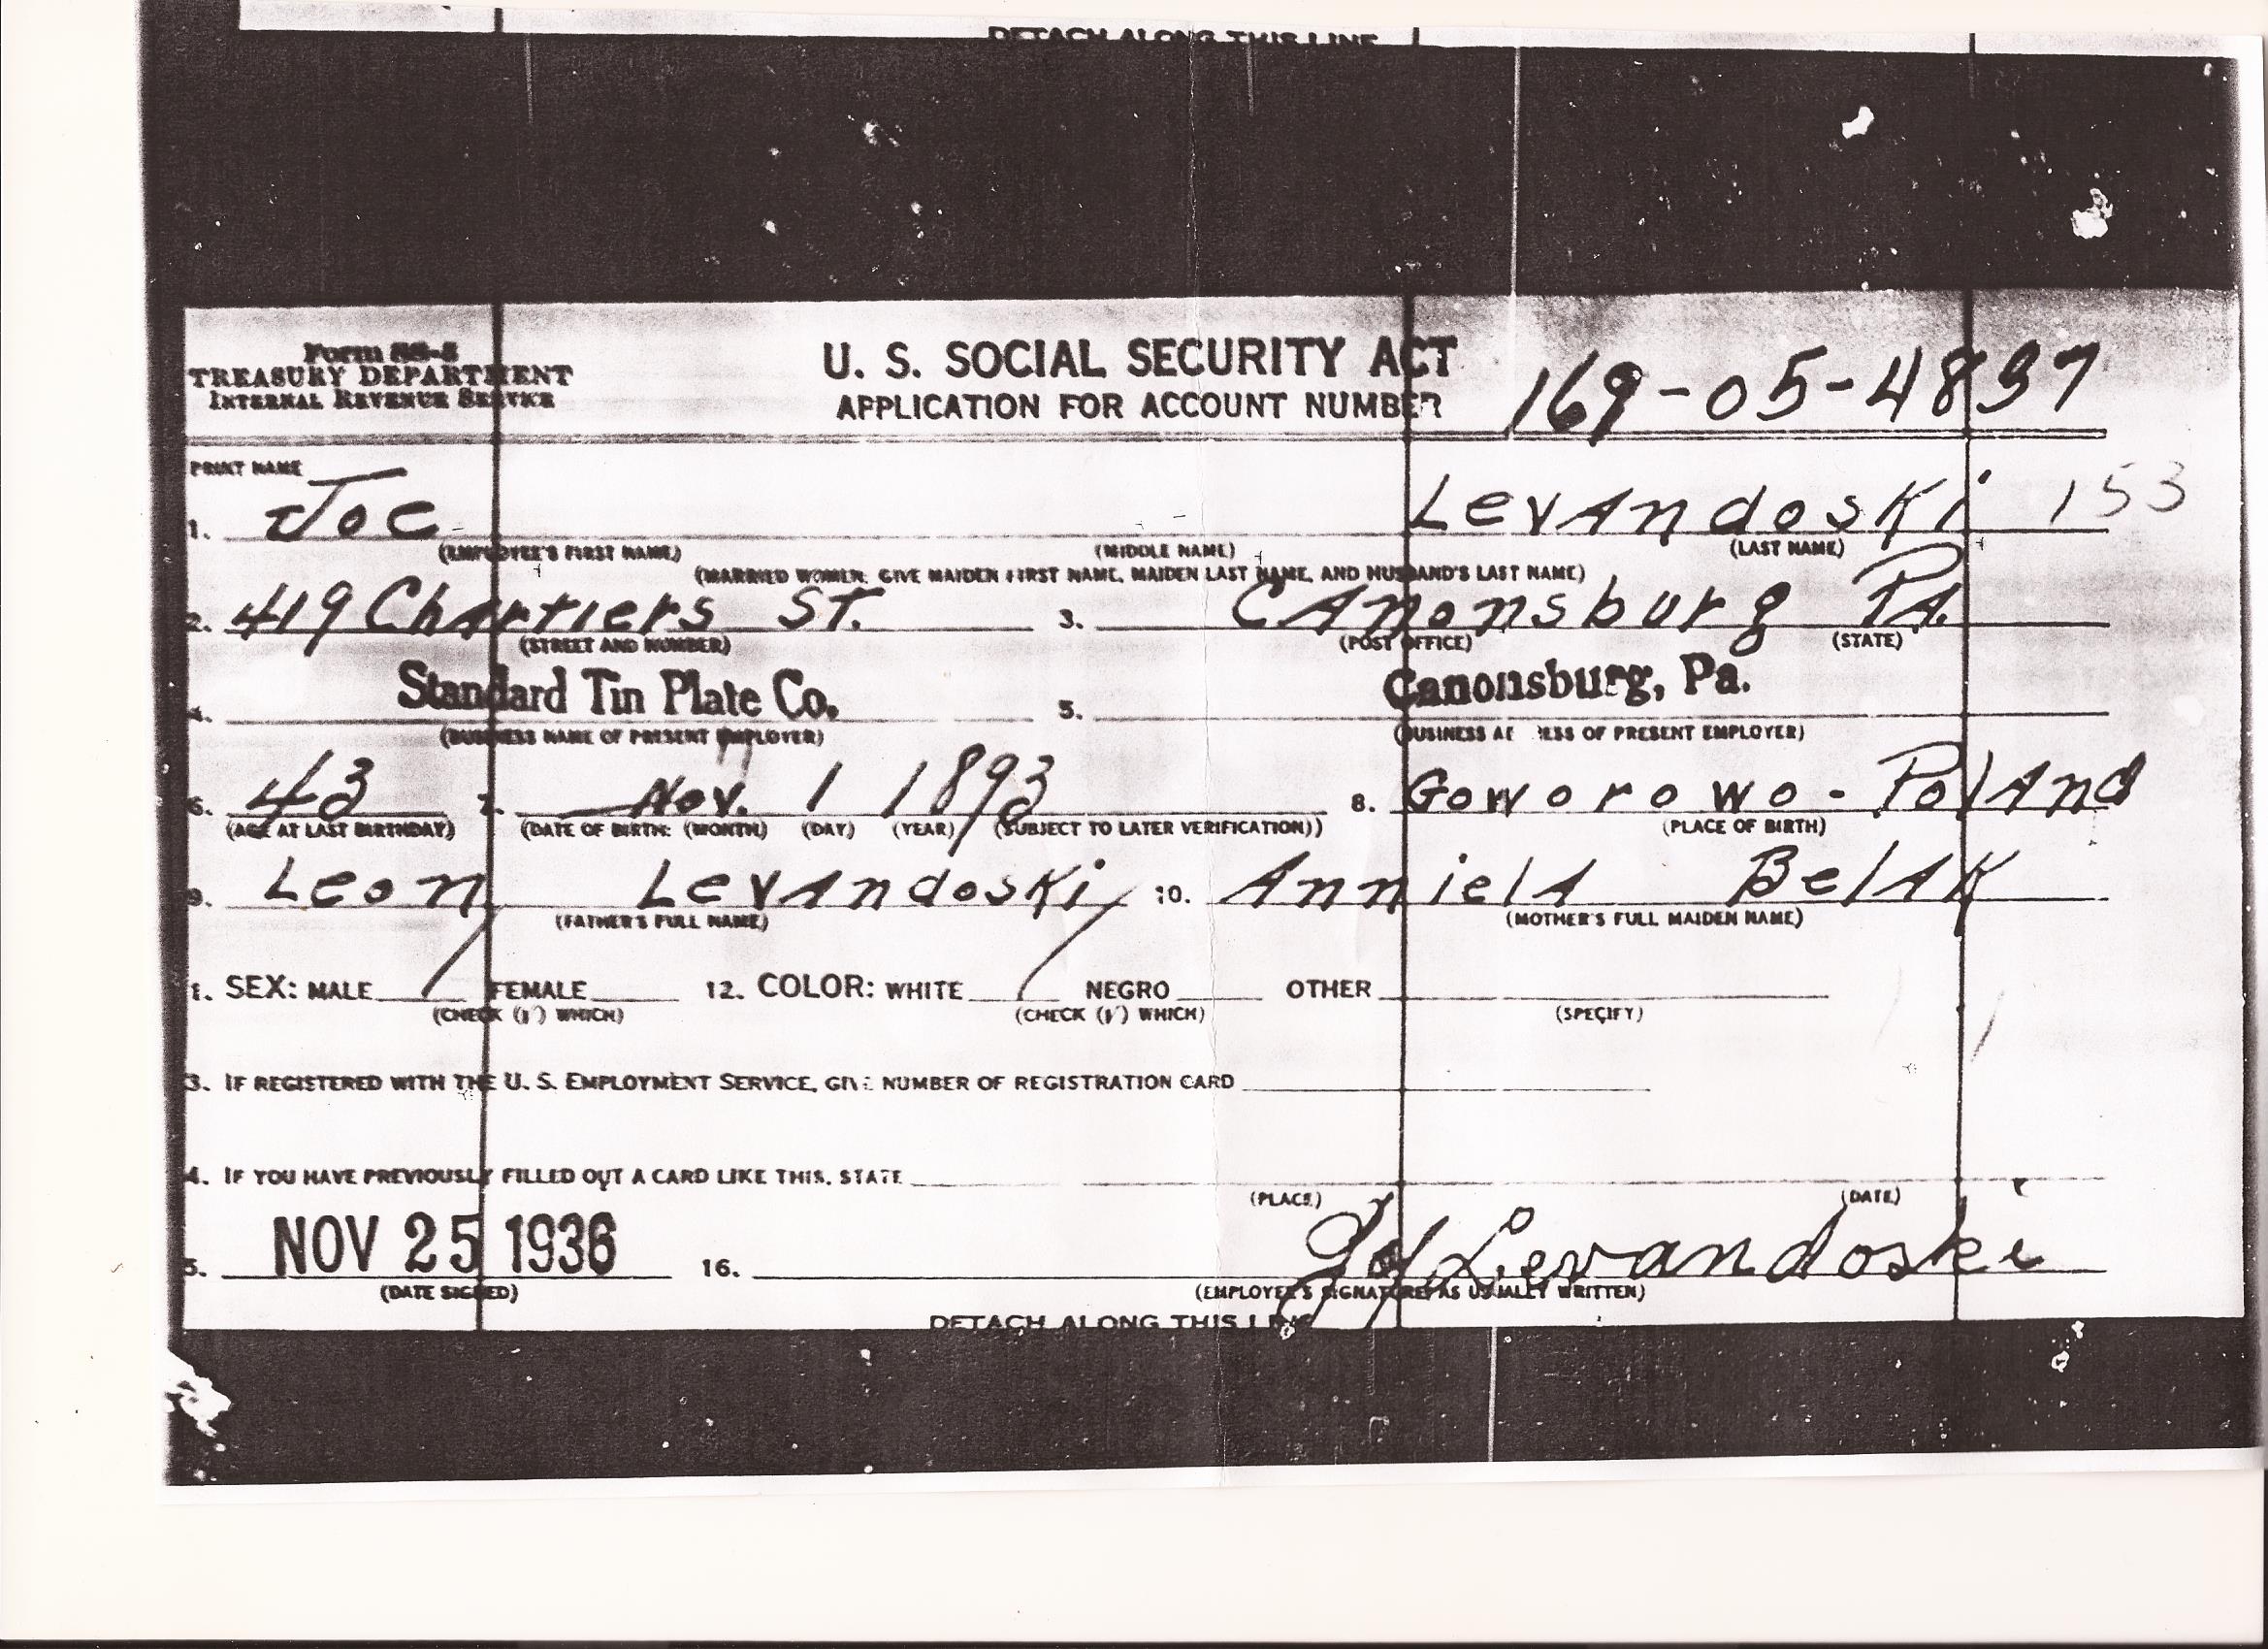 DETACH ALONG THIS LINE
Form SS-5
TREASURY DEPARTMENT
INTERNAL REVENUE SERVICE
U. S. SOCIAL SECURITY ACT
APPLICATION FOR ACCOUNT NUMBER
169-05-4897
PRINT NAME
1. Joe Levandoski 153
(EMPLOYEE'S FIRST NAME) (MIDDLE NAME) (LAST NAME)
(MARRIED WOMEN: GIVE MAIDEN FIRST NAME, MAIDEN LAST NAME, AND HUSBAND'S LAST NAME)
2. 419 Chartiers St. 3. Canonsburg Pa.
(STREET AND NUMBER) (POST OFFICE) (STATE)
4. Standard Tin Plate Co. 5. Canonsburg, Pa.
(BUSINESS NAME OF PRESENT EMPLOYER) (BUSINESS ADDRESS OF PRESENT EMPLOYER)
6. 43 7. Nov. 1 1893 8. Goworowo - Poland
(AGE AT LAST BIRTHDAY) (DATE OF BIRTH: (MONTH) (DAY) (YEAR) (SUBJECT TO LATER VERIFICATION)) (PLACE OF BIRTH)
9. Leon Levandoski 10. Anniela Belak
(FATHER'S FULL NAME) (MOTHER'S FULL MAIDEN NAME)
1. SEX: MALE / FEMALE 12. COLOR: WHITE / NEGRO OTHER
(CHECK (✓) WHICH) (CHECK (✓) WHICH) (SPECIFY)
3. IF REGISTERED WITH THE U. S. EMPLOYMENT SERVICE, GIVE NUMBER OF REGISTRATION CARD
4. IF YOU HAVE PREVIOUSLY FILLED OUT A CARD LIKE THIS, STATE
(PLACE) (DATE)
5. NOV 25 1936 16. Levandoski
(DATE SIGNED) (EMPLOYEE'S SIGNATURE, AS USUALLY WRITTEN)
DETACH ALONG THIS LINE